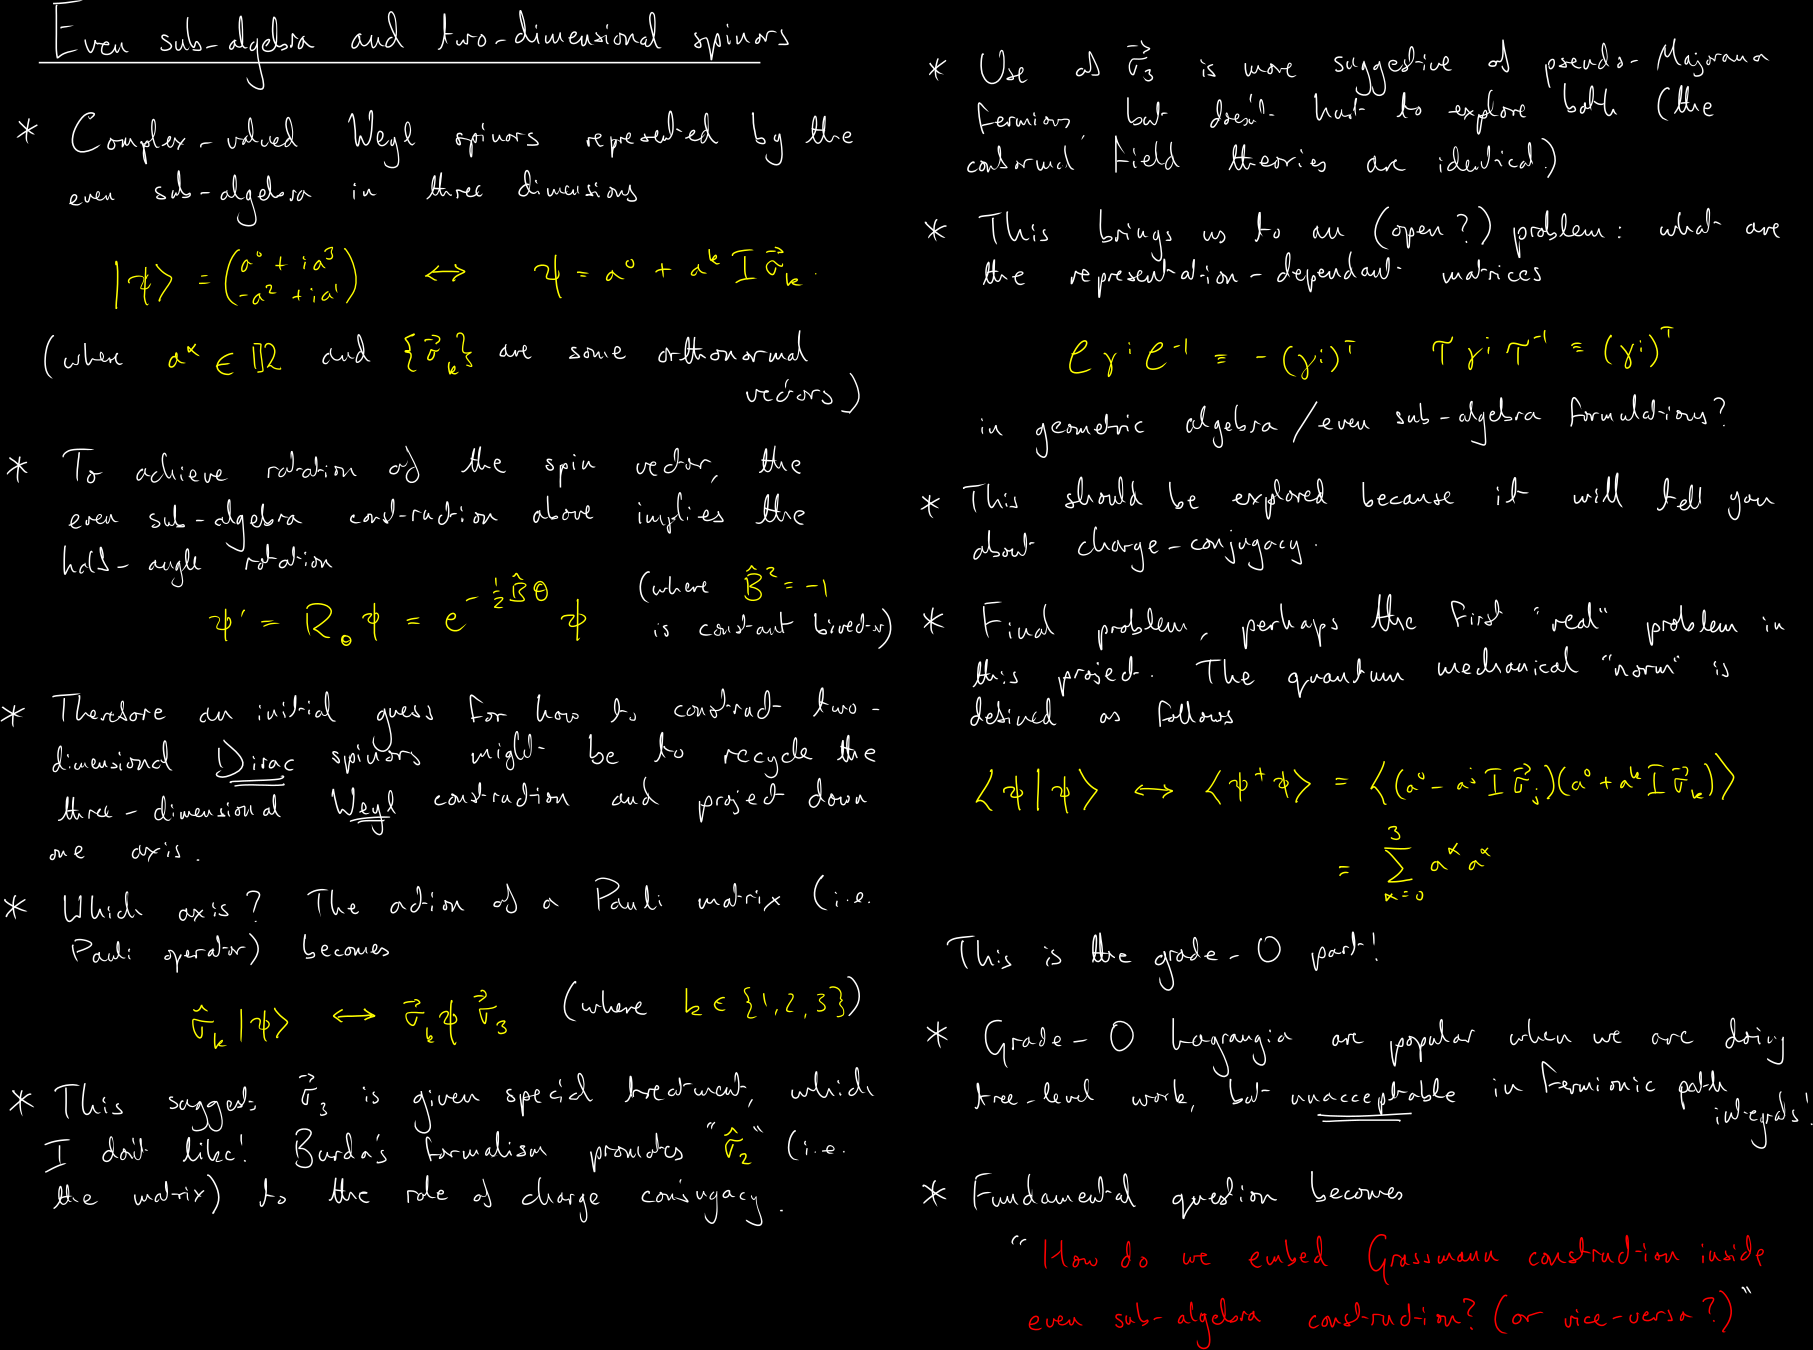 Even sub-algebra and two-dimensional spinors
* Complex-valued Weyl spinors represented by the
even sub-algebra in three dimensions
|ψ⟩ = (a⁰ + ia³ / -a² + ia¹) ↔ ψ = a⁰ + aᵏ I σ⃗ₖ.
(where aᵅ ∈ ℝ and {σ⃗ₖ} are some orthonormal
vectors)
* To achieve rotation of the spin vector, the
even sub-algebra construction above implies the
half-angle rotation
ψ' = R_θ ψ = e^{-½B̂θ} ψ (where B̂² = -1
is constant bivector)
* Therefore an initial guess for how to construct two-
dimensional Dirac spinors might be to recycle the
three-dimensional Weyl construction and project down
one axis.
* Which axis? The action of a Pauli matrix (i.e.
Pauli operator) becomes
σ̂ₖ|ψ⟩ ↔ σ⃗ₖ ψ σ⃗₃ (where k ∈ {1,2,3})
* This suggests σ⃗₃ is given special treatment, which
I don't like! Burda's formalism promotes "σ̂₂" (i.e.
the matrix) to the role of charge conjugacy.
* Use of σ⃗₃ is more suggestive of pseudo-Majorana
fermions, but doesn't hurt to explore both (the
conformal field theories are identical)
* This brings us to an (open?) problem: what are
the representation-dependant matrices
C γⁱ C⁻¹ ≡ -(γⁱ)ᵀ T γⁱ T⁻¹ ≡ (γⁱ)ᵀ
in geometric algebra/even sub-algebra formulations?
* This should be explored because it will tell you
about charge-conjugacy.
* Final problem, perhaps the first "real" problem in
this project. The quantum mechanical "norm" is
defined as follows
⟨ψ|ψ⟩ ↔ ⟨ψ†ψ⟩ = ⟨(a⁰ - aʲ I σ⃗ⱼ)(a⁰ + aᵏ I σ⃗ₖ)⟩
= Σ_{α=0}^{3} aᵅ aᵅ
This is the grade-0 part!
* Grade-0 Lagrangia are popular when we are doing
tree-level work, but unacceptable in fermionic path
integrals!
* Fundamental question becomes
"How do we embed Grassmann construction inside
even sub-algebra construction? (or vice-versa?)"